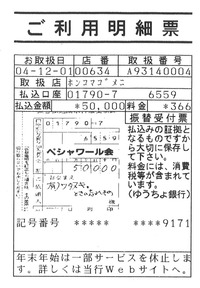 ご利用明細票
お取扱日 店番 取扱番号
04-12-01 00634 A93140004
取扱店 ホンコマゴメニ
払込口座 01790-7 6559
払込金額 *50,000 料金 *366
振替受付票
払込みの証拠となるものですから大切に保存して下さい。
料金には、消費税等が含まれています。
(ゆうちょ銀行)
01790 7
6559
ペシャワール会
50000
記号番号 ***** ****9171
年末年始は一部サービスを休止します。詳しくは当行Webサイトへ。